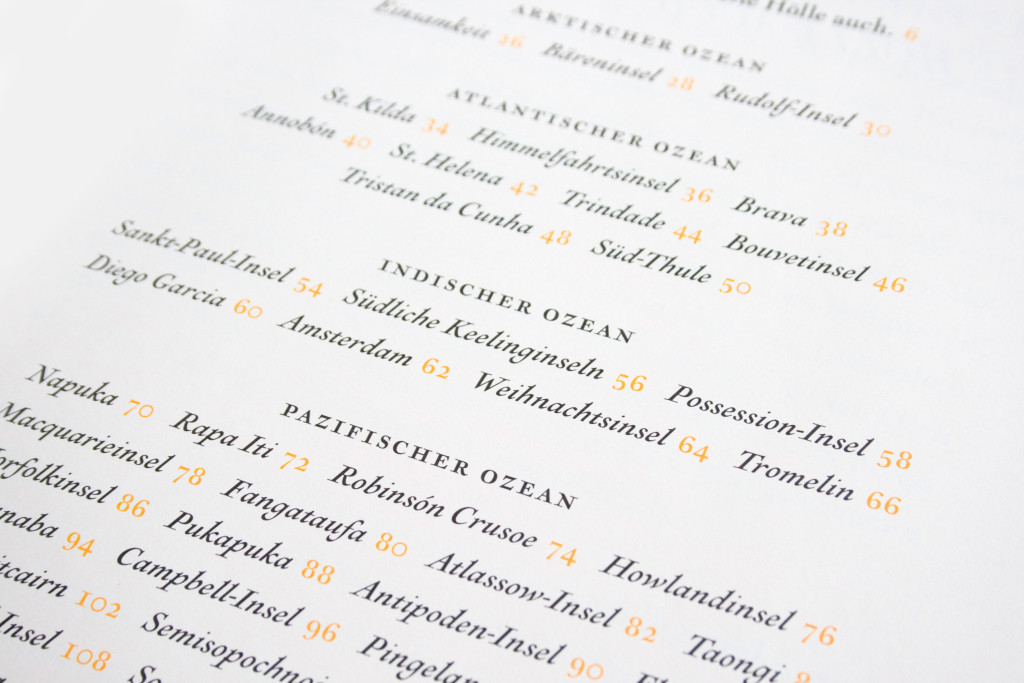 Hölle auch. 6
ARKTISCHER OZEAN
Einsamkeit 26 Bäreninsel 28 Rudolf-Insel 30
ATLANTISCHER OZEAN
St. Kilda 34 Himmelfahrtsinsel 36 Brava 38
Annobón 40 St. Helena 42 Trindade 44 Bouvetinsel 46
Tristan da Cunha 48 Süd-Thule 50
INDISCHER OZEAN
Sankt-Paul-Insel 54 Südliche Keelinginseln 56 Possession-Insel 58
Diego Garcia 60 Amsterdam 62 Weihnachtsinsel 64 Tromelin 66
PAZIFISCHER OZEAN
Napuka 70 Rapa Iti 72 Robinsón Crusoe 74 Howlandinsel 76
Macquarieinsel 78 Fangataufa 80 Atlassow-Insel 82 Taongi
orfolkinsel 86 Pukapuka 88 Antipoden-Insel 90
naba 94 Campbell-Insel 96 Pingela
tcairn 102 Semisopochno
Insel 108